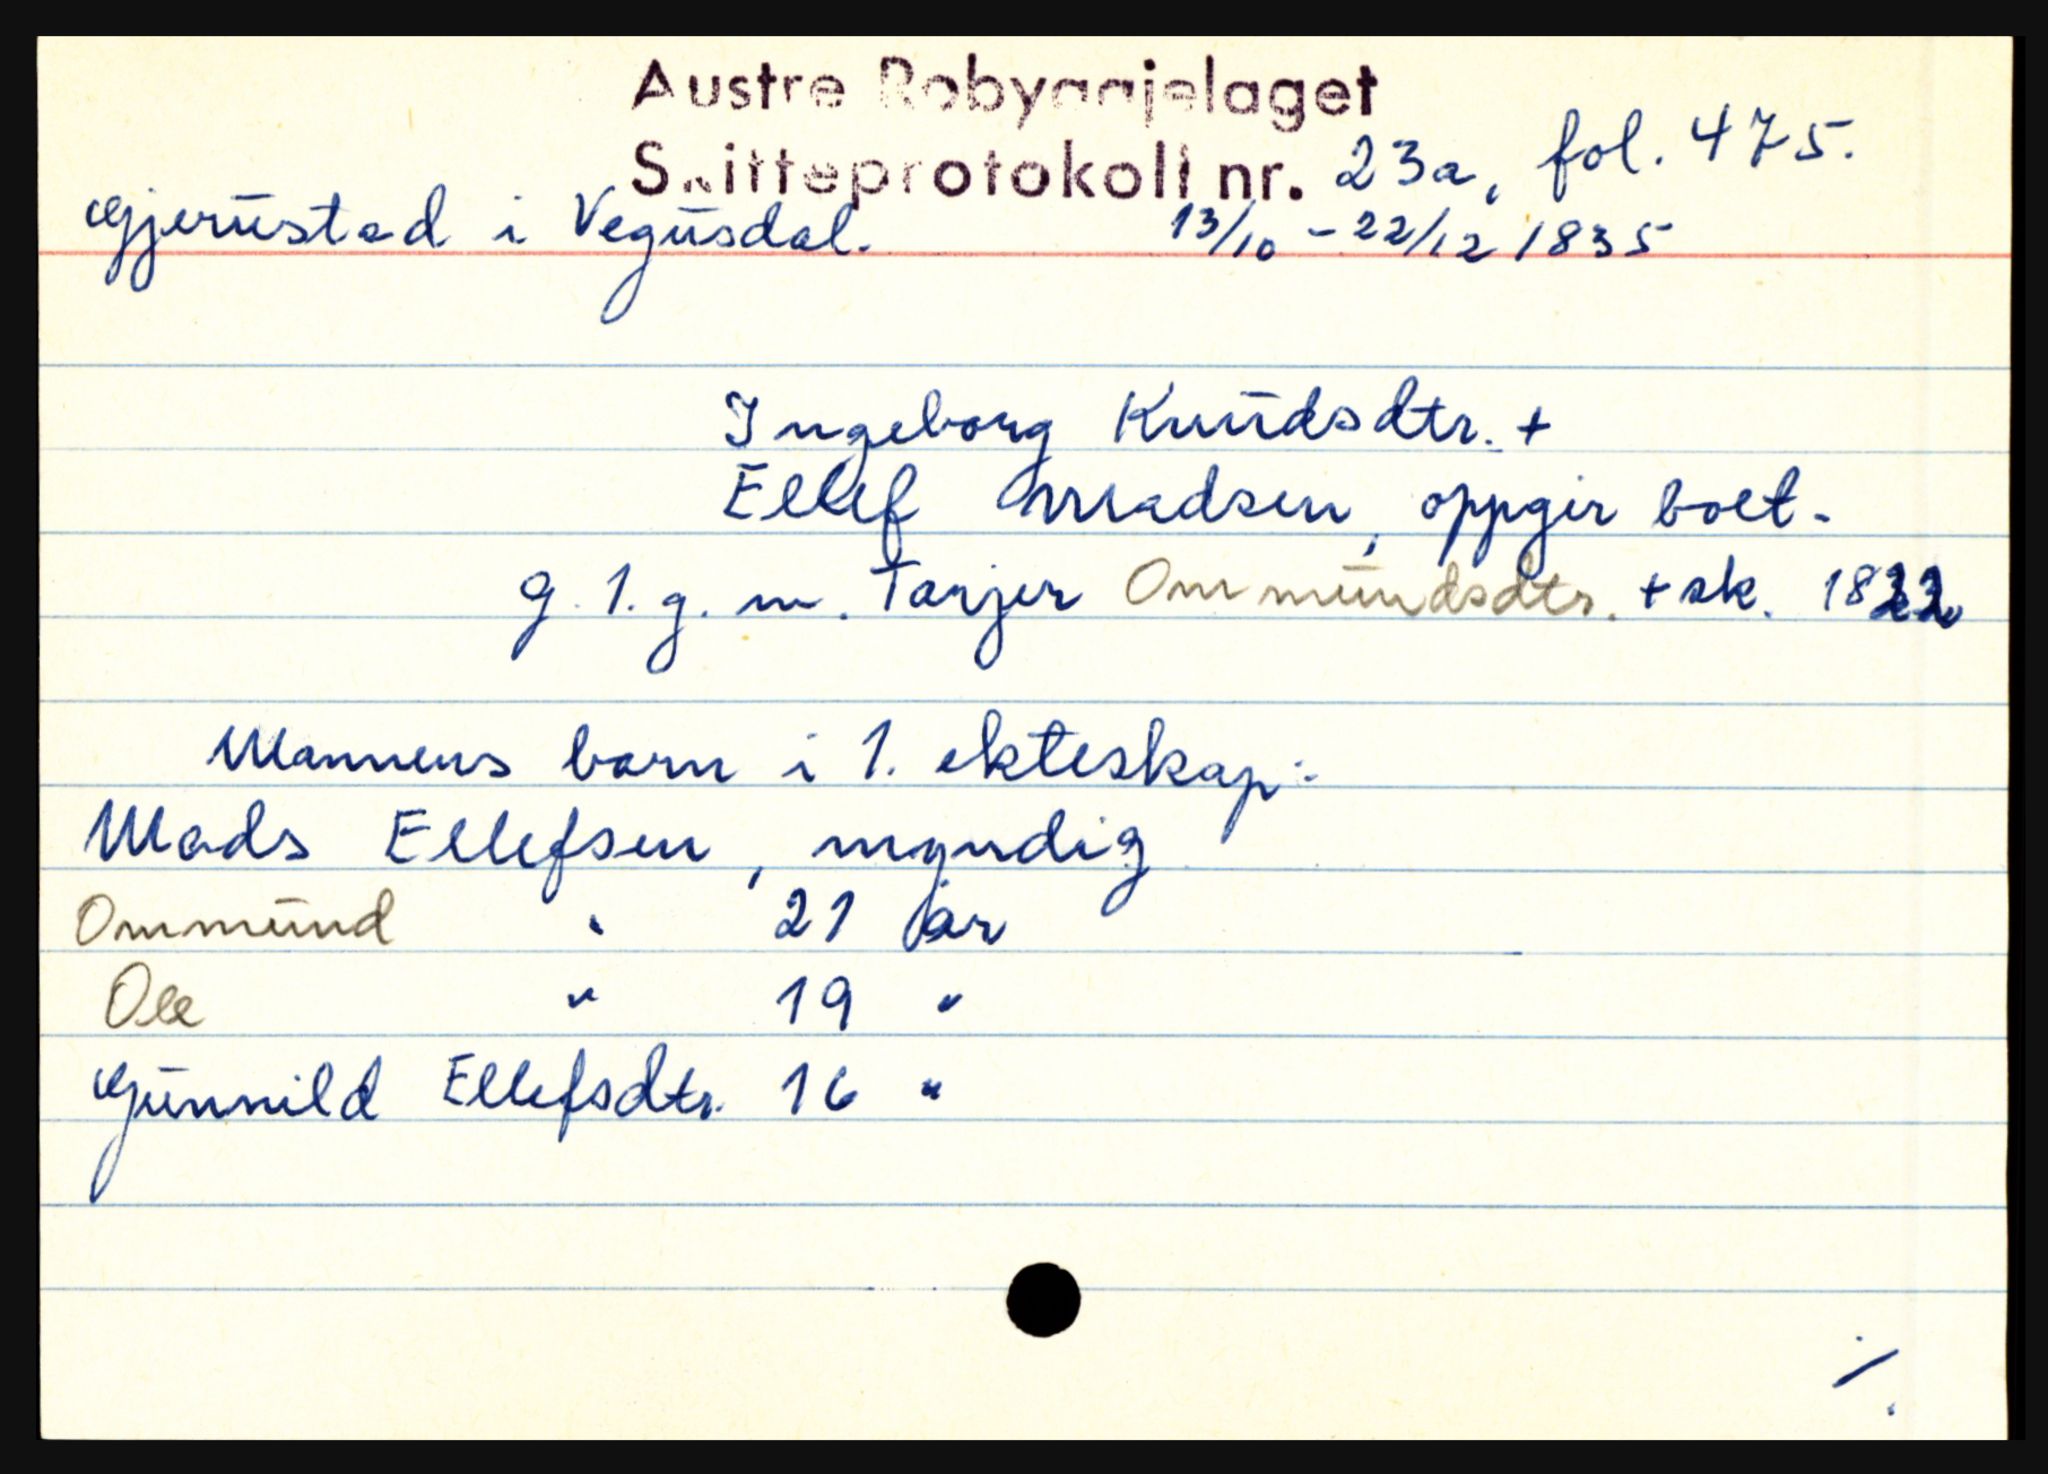 Austre Robyggjelaget
Skifteprotokoll nr. 23a, fol. 475.
Gjerustad i Vegusdal. 13/10 - 22/12 1835
Ingeborg Knudsdtr. +
Ellef Madsen, oppgir boet.
g. 1. g. m. Tarjer Ommundsdtr. + sk. 1822
Mannens barn i 1. ekteskap:
Mads Ellefsen, myndig
Ommund " 21 år
Ole " 19 "
Gunnild Ellefsdtr. 16 "